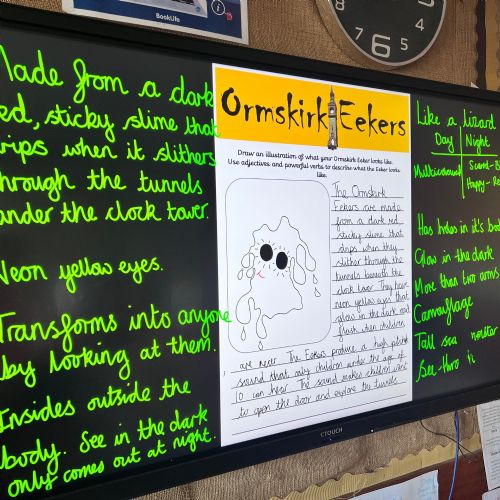 BookLife
Made from a dark
red, sticky slime that
drips when it slithers
through the tunnels
under the clock tower.
Neon yellow eyes.
Transforms into anyone
by looking at them.
Insides outside the
body. See in the dark
only comes out at night.
Ormskirk Eekers
Draw an illustration of what your Ormskirk Eeker looks like.
Use adjectives and powerful verbs to describe what the Eeker looks
like.
The Ormskirk
Eekers are made
from a dark red
sticky slime that
drips when they
slither through the
tunnels beneath the
clock tower. They have
neon yellow eyes that
glow in the dark and
flash when children
are near. The Eekers produce a high pitched
sound that only children under the age of
10 can hear. The sound makes children want
to open the door and explore the tunnels.
Like a lizard
Day Night
Multicoloured
Happy - Re
Has holes in it's bo
Glow in the dark
More than two arms
Camouflage
Tall sea monster
See-thro
CTOUCH
5
6
7